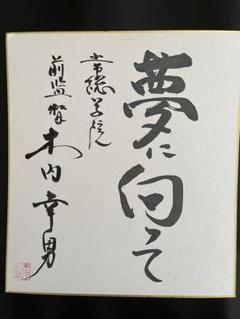 夢に向って
常総学院
前監督
木内幸男